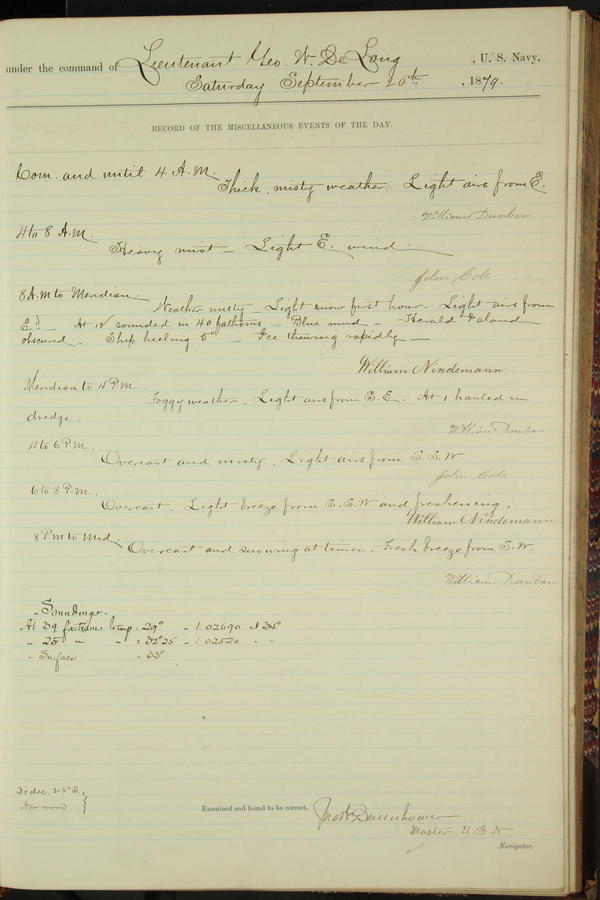 under the command of Lieutenant Geo. W. De Long, U. S. Navy,
Saturday, September 20th, 1879.
RECORD OF THE MISCELLANEOUS EVENTS OF THE DAY.
Com. and until 4 A.M.
Thick, misty weather. Light airs from E.
William Dunbar
4 to 8 A.M.
Heavy mist – Light E. wind.
John Cole
8 A.M to Meridian.
Weather misty – Light snow first hour – Light airs from
E'd – At 12 sounded in 40 fathoms – Blue mud – Herald Island
obscured – Ship heeling 5° – Ice thawing rapidly –
William Nindemann
Meridian to 4 P.M.
Foggy weather. Light airs from S.E. At 1 hauled in
dredge.
William Dunbar
4 to 6 P.M.
Overcast and misty. Light airs from S.S.W.
John Cole
6 to 8 P.M.
Overcast – Light breeze from S.S.W and freshening.
William Nindemann
8 P.M to Mid.
Overcast and snowing at times. Fresh breeze from S.W.
William Dunbar
– Soundings –
At 39 fathoms temp = 29° – 1.02690 34°
" 25 " " = 32°25 – 1.02520 " "
" Surface = 33°
28° S.
New moon
Examined and found to be correct.
Jno W Danenhower
Master. U.S.N.
Navigator.